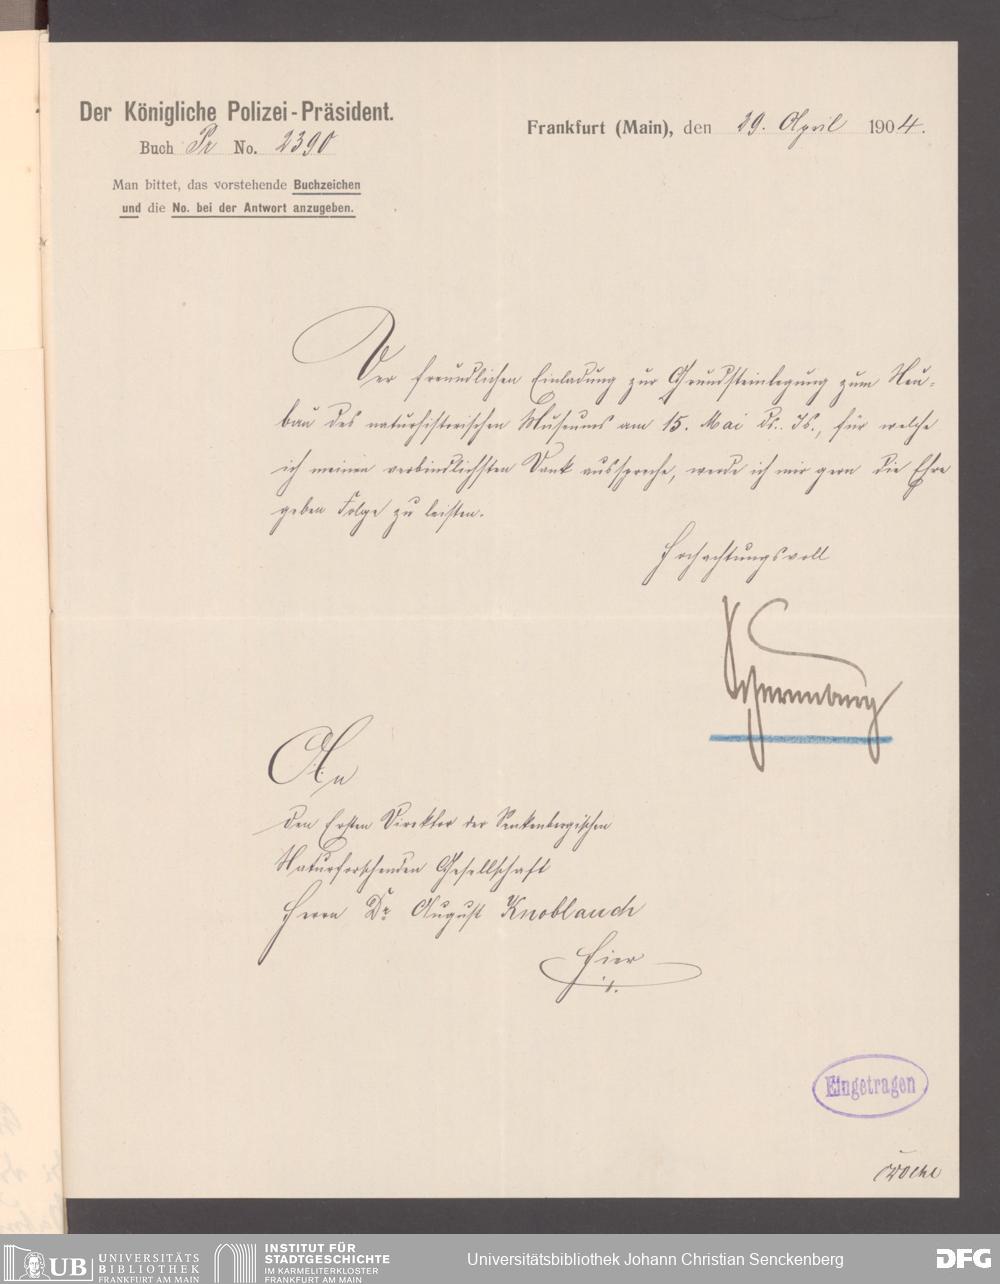 Der Königliche Polizei-Präsident.
Buch Pr No. 2390
Frankfurt (Main), den 29. April 1904.
Man bittet, das vorstehende Buchzeichen
und die No. bei der Antwort anzugeben.
Der freundlichen Einladung zur Grundsteinlegung zum Neu-
bau des naturhistorischen Museums am 15. Mai ds. Js., für welche
ich meinen verbindlichsten Dank ausspreche, werde ich mir gern die Ehre
geben Folge zu leisten.
Hochachtungsvoll
Scherenberg
An
den Ersten Direktor der Senkenbergischen
Naturforschenden Gesellschaft
Herrn Dr August Knoblauch
Hier
Eingetragen
UB UNIVERSITÄTS
BIBLIOTHEK
FRANKFURT AM MAIN
INSTITUT FÜR
STADTGESCHICHTE
IM KARMELITERKLOSTER
FRANKFURT AM MAIN
Universitätsbibliothek Johann Christian Senckenberg
DFG